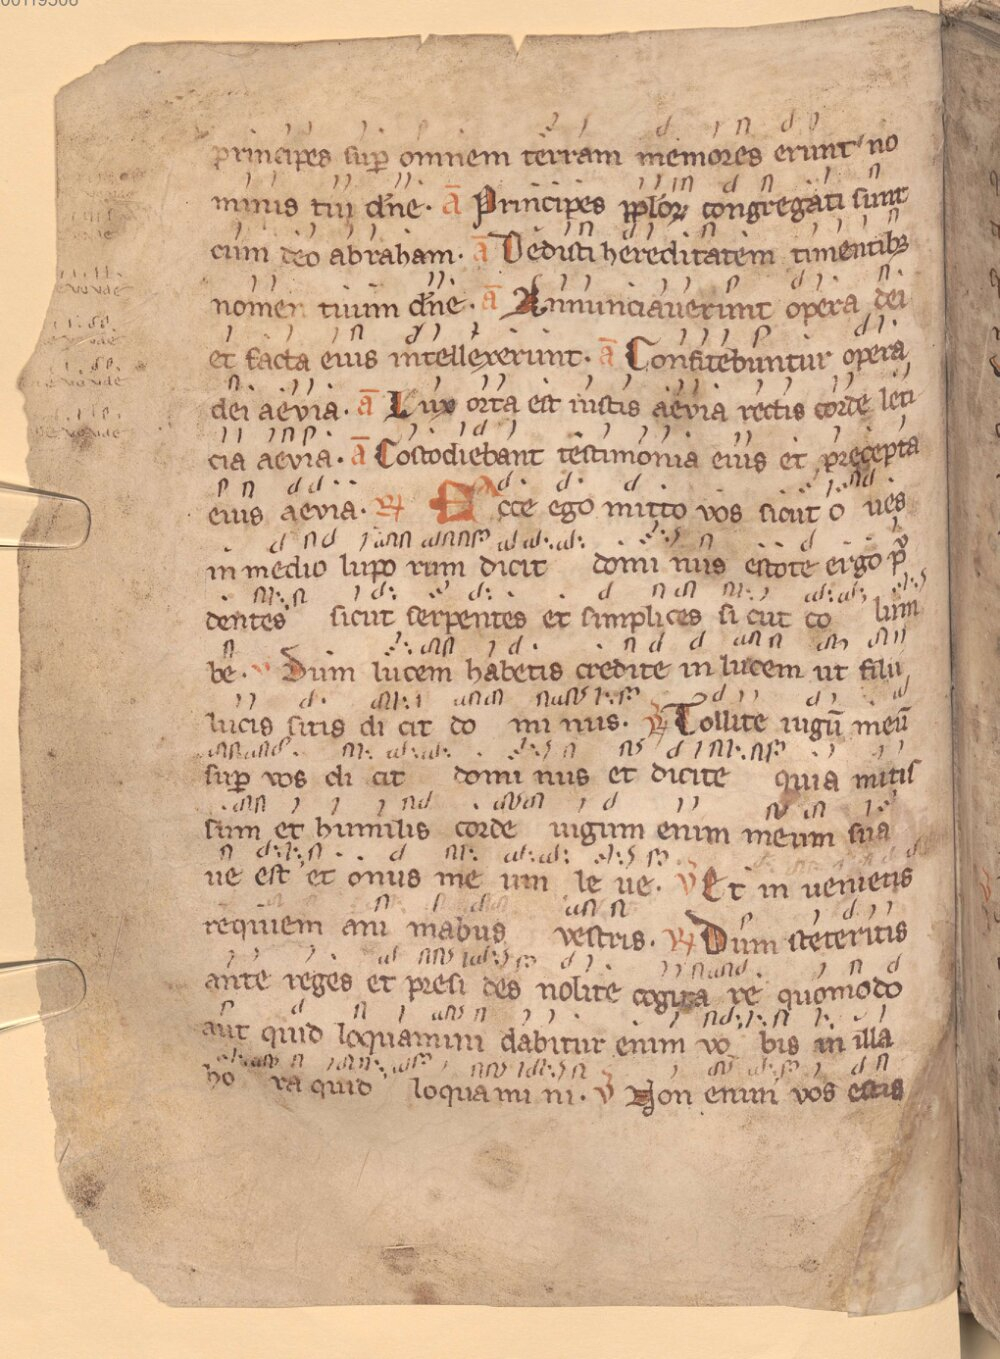 principes sup̄ omnem terram memores erunt no
minis tui dn̄e. ā Principes pplōꝝ congregati sunt
cum deo abraham. ā Dedisti hereditatem timentibꝫ
nomen tuum dn̄e. ā Annunciauerunt opera dei
et facta eius intellexerunt. ā Confitebuntur opera
dei aevia. ā Lux orta est iustis aevia rectis corde leti
cia aevia. ā Costodiebant testimonia eius et precepta
eius aevia. ℟ Ecce ego mitto vos sicut o ues
in medio lupo rum dicit domi nus estote ergo p̄
dentes sicut serpentes et simplices si cut co lum
be. v Dum lucem habetis credite in lucem ut filii
lucis sitis di cit do mi nus. ℟ Tollite iugū meū
sup̄ vos di cit domi nus et dicite quia mitis
sum et humilis corde iugum enim meum sua
ue est et onus me um le ue. v Et in uenietis
requiem ani mabus vestris. ℟ Dum steteritis
ante reges et presi des nolite cogita re quomodo
aut quid loquamini dabitur enim vo bis in illa
ho ra quid loquami ni. v Non enim vos estis